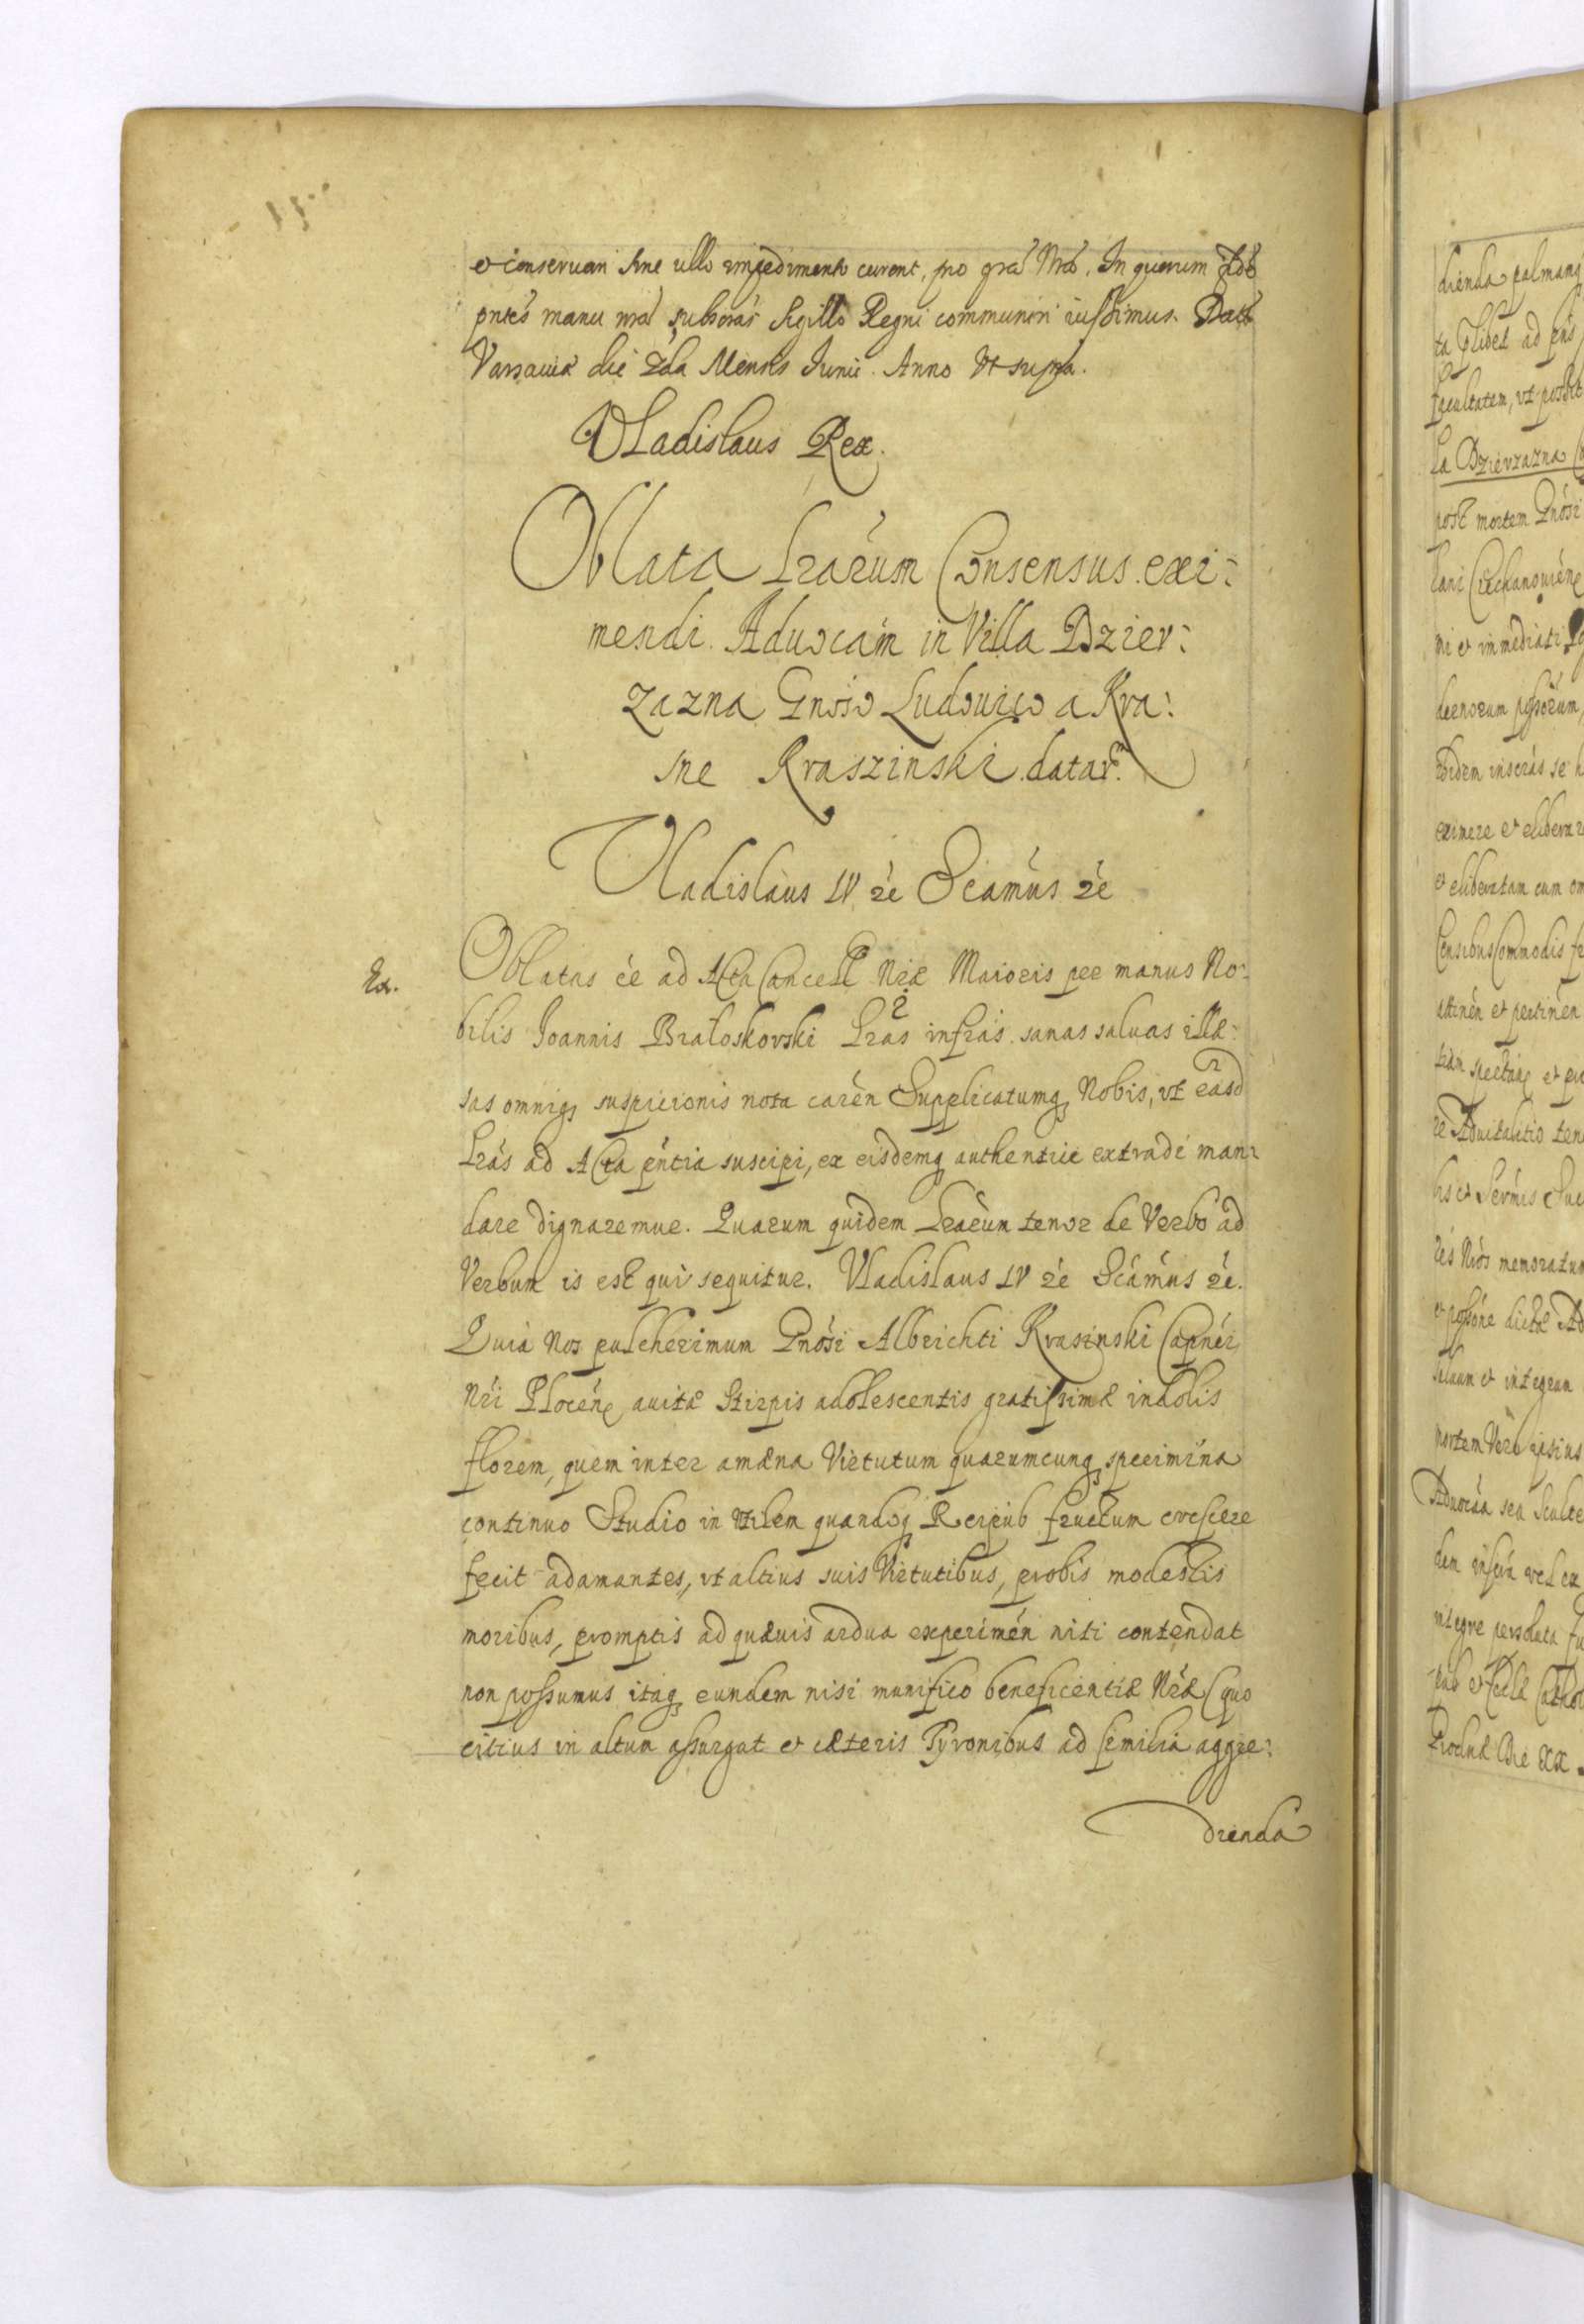 et conseruari sine ullo impedimento curent, pro gra Nra. In quorum fidē
pntes manu nra subscrās Sigillo Regni communiri iussimus. Datt
Varsauiæ die 2da Mensis Iunii. Anno Vt supra.
Vladislaus Rex.
Oblata Lrarum Consensus exi:
mendi Aduocām in Villa Dzier:
zazna Gnōso Ludouico a Kra:
sne Kraszinski datar.
Vladislaus IV &c Scamus &c
Ex.
Oblatas ēe ad Acta Cancell Nræ Maioris per manus No:
bilis Joannis Bialoskorski Lras infrās. sanas saluas illæ:
sas omniq suspicionis nota carēn Supplicatumq Nobis, vt easd
Lrás ad Acta pñtia suscipi, ex eisdemq authentice extradi man:
dare dignaremur. Quarum quidem Lrarum tenor de Verbo ad
Verbum is est qui sequitur. Vladislaus IV &c Scámus &c.
Quia Nos pulcherimum Gnósi Albrichti Krasinski Capnéi
Nri Plocēn auitæ Stirpis adolescentis gratissimæ indolis
florem, quem inter amæna Virtutum quarumcunq specimina
continuo Studio in vtilem quandoq Reipub fructum crescere
fecit adamantes, vt altius suis Virtutibus, probis modestis
moribus, promptis ad quæuis ardua experimén niti contendat
non possumus itaq eundem nisi munifico beneficentiæ Nræ (quo
citius in altum assurgat et cæteris Tyronibus ad similia aggre:
dienda
dienda palmam
ta libet ad
facultatem, vt possit
la Dzierzazna
post mortem Gnósi
lani Ciechanouién
ni et immediati
ibidem inscrás se
eximere et eliberar
et eliberatam cum om
Censibus Commodis
attinén et pertinén
re Aduitalitio ten
rés Nrós memoratum
et possóne dictæ Ad
saluam et integram
mortem Vero ipsius
integre persoluta